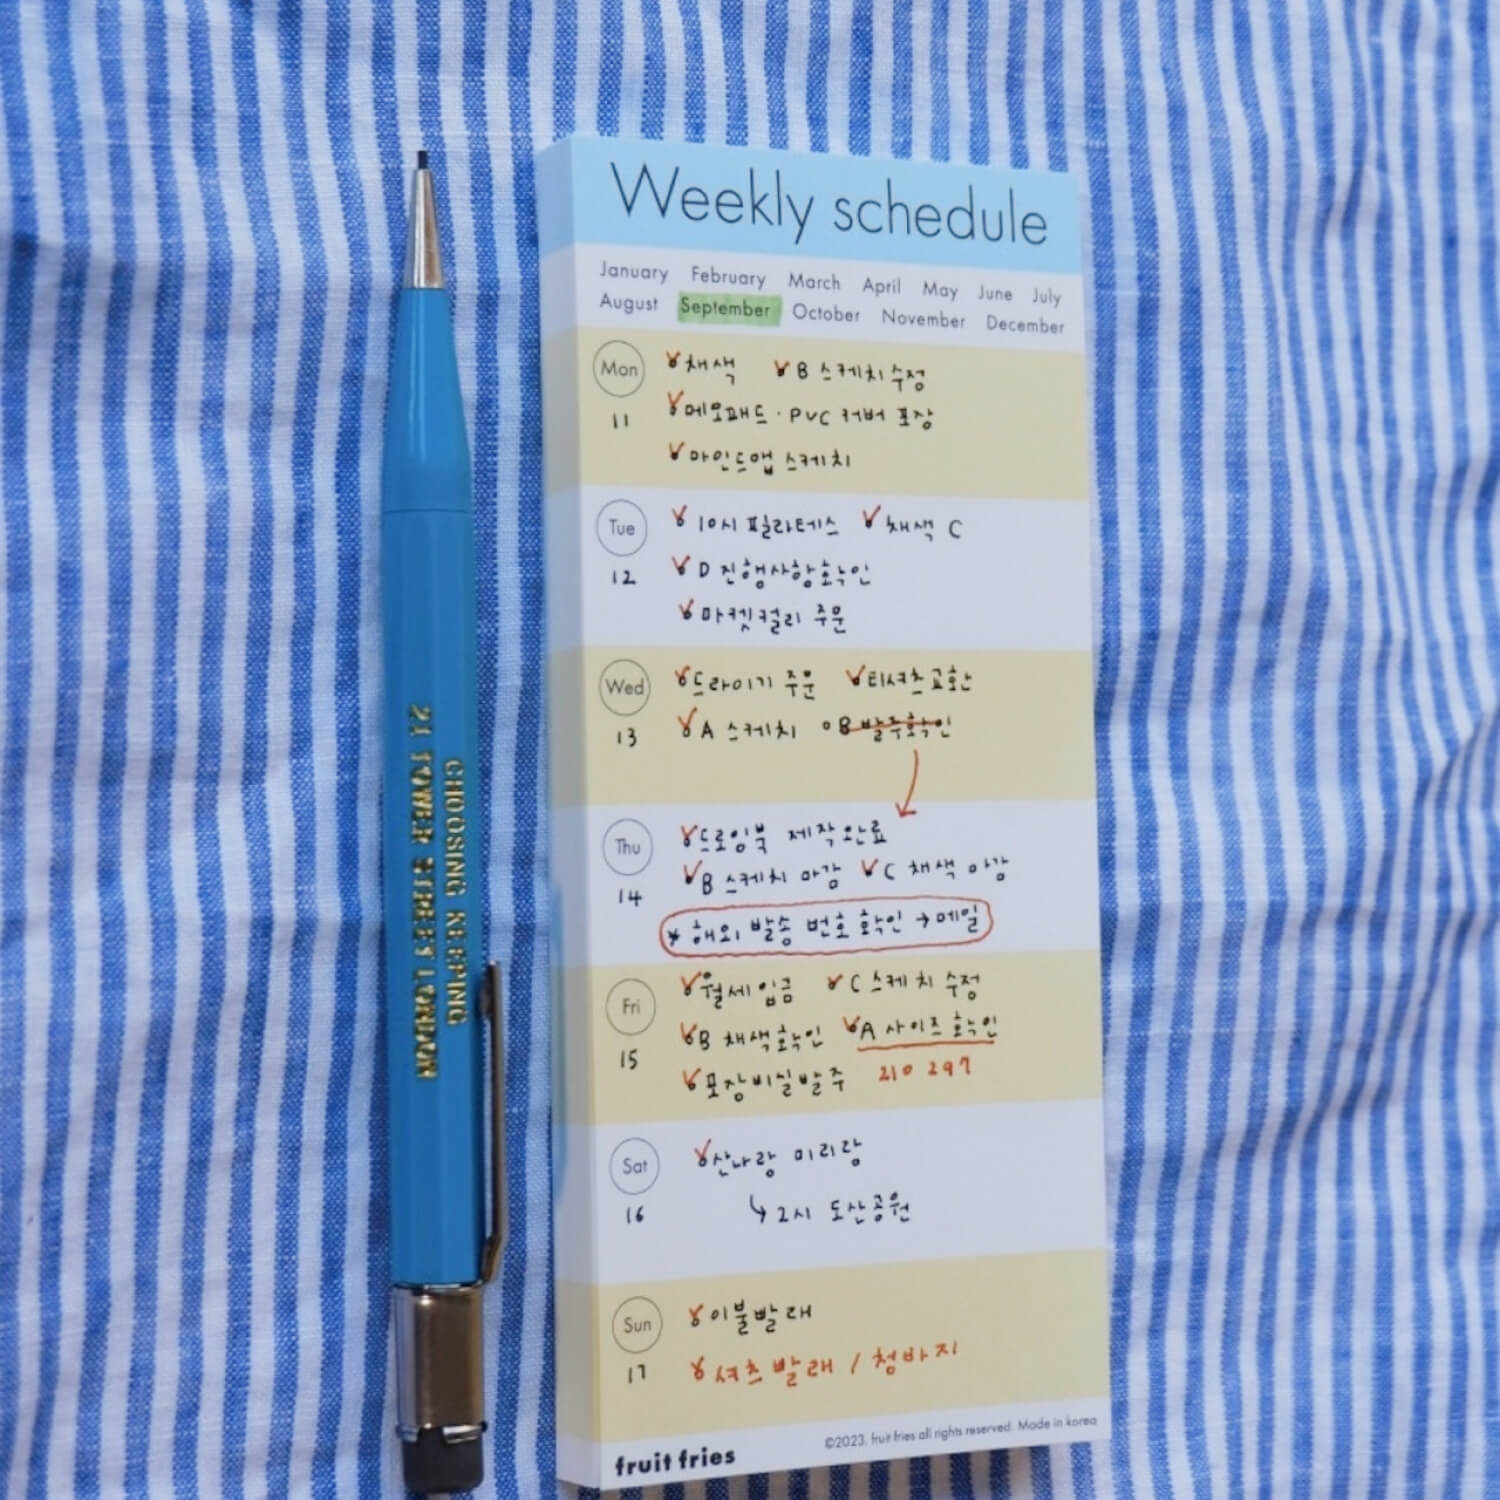 Weekly schedule
January February March April May June July
August September October November December
Mon 채색 B 스케치 수정
11 메모패드 · PVC 커버 포장
마인드맵 스케치
Tue 10시 필라테스 채색 C
12 D 진행사항확인
마켓컬리 주문
Wed 드라이기 주문 티셔츠 교환
13 A 스케치 B 발주확인
Thu 드로잉북 제작완료
14 B 스케치 마감 C 채색 마감
* 해외 발송 번호 확인 → 메일
Fri 월세입금 C 스케치 수정
B 채색확인 A 사이즈 확인
15 포장비실발주 210 297
Sat 산나랑 미리랑
16 ↳ 2시 도산공원
Sun 이불빨래
17 셔츠빨래 / 청바지
fruit fries ©2023. fruit fries all rights reserved. Made in korea
CHOOSING KEEPING
21 TOWER STREET LONDON